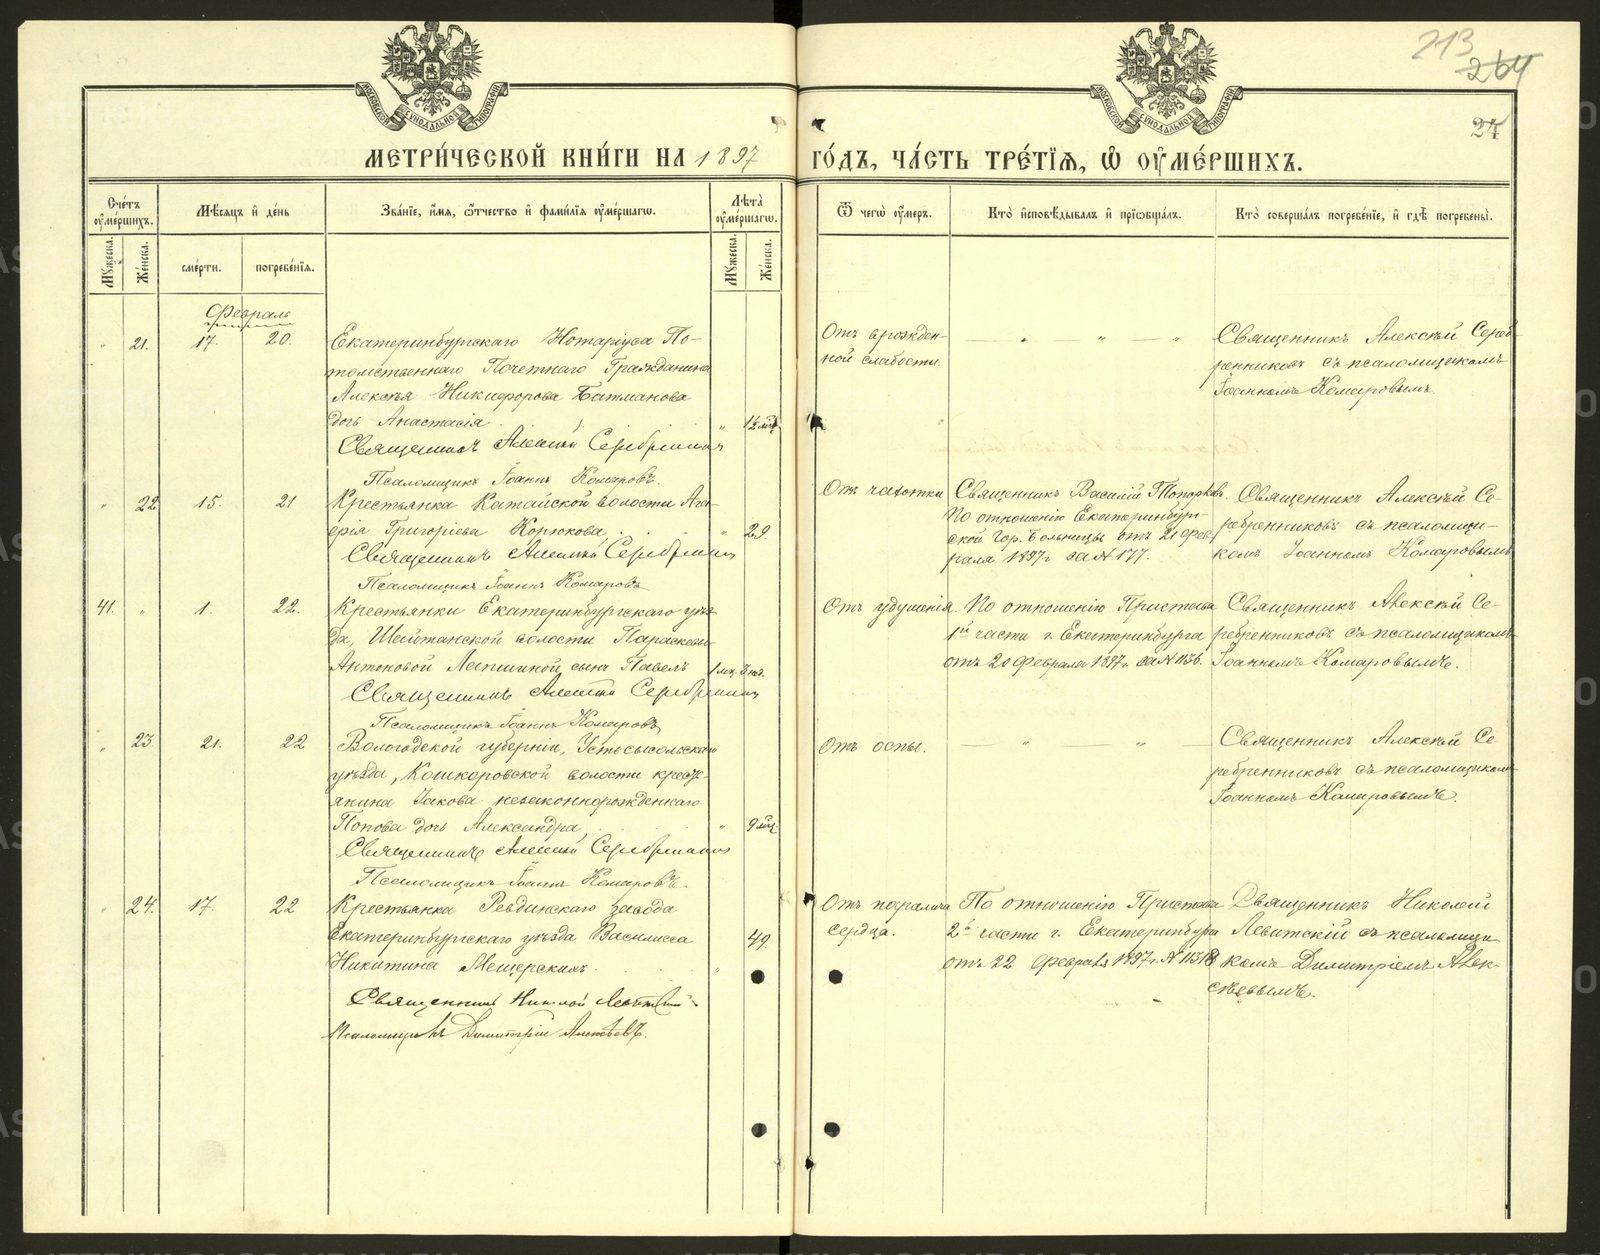 213
264
24
МОСКОВСКОЙ СУНОДАЛЬНОЙ ТИПОГРАФІИ
МОСКОВСКОЙ СУНОДАЛЬНОЙ ТИПОГРАФІИ
МЕТРИ́ЧЕСКОЙ КНИ́ГИ НА 1897
ГО́ДЪ, ЧА́СТЬ ТРЕ́ТІѦ, Ѽ ОУ҆МЕ́РШИХЪ.
Сче́тъ оу҆ме́ршихъ.
Му́жеска.
Же́нска.
Мѣ́сяцъ и҆ де́нь
сме́рти.
погребе́нїѧ.
Зва́нїе, и҆́мѧ, ѻ҆́тчество и҆ фами́лїѧ оу҆ме́ршагѡ.
Лѣ́та оу҆ме́ршагѡ.
Му́жеска.
Же́нска.
Ѿ чегѡ̀ оу҆́меръ.
Кто̀ и҆сповѣ́дывалъ и҆ прїѡбща́лъ.
Кто̀ соверша́лъ погребе́нїе, и҆ гдѣ̀ погребены̀.
Февраль
" 21. 17. 20.
Екатеринбургскаго Нотаріуса По-
томственнаго Почетнаго Гражданина
Алексѣя Никифорова Батманова
дочь Анастасія " 1½ мѣс.
Священникъ Алексѣй Серебренниковъ
Псаломщикъ Іоаннъ Комаровъ.
Отъ врожден-
ной слабости.
— " " — "
Священникъ Алексѣй Сереб-
ренниковъ съ псаломщикомъ
Іоанномъ Комаровымъ.
" 22 15. 21
Крестьянка Катайской волости
Григоріева Корюкова " 29.
Священникъ Алексѣй Серебренниковъ
Псаломщикъ Іоаннъ Комаровъ
Отъ чахотки
Священникъ Василій Топорковъ.
По отношенію Екатеринбург-
ской Гор. Больницы отъ 21 фев-
раля 1897 г за № 177.
Священникъ Алексѣй Се-
ребренниковъ съ псаломщи-
комъ Іоанномъ Комаровымъ
41. " 1. 22.
Крестьянки Екатеринбургскаго уѣз-
да, Шайтанской волости Параскевы
Антоновой Лапшиной сынъ Павелъ
Священникъ Алексѣй Серебренниковъ
Псаломщикъ Іоаннъ Комаровъ
Отъ удушенія
По отношенію Пристава
1й части г. Екатеринбурга
отъ 20 Февраля 1897 г. за № 1136.
Священникъ Алексѣй Се-
ребренниковъ съ псаломщикомъ
Іоанномъ Комаровымъ.
" 23 21. 22
Вологодской губерніи, Устьсысольскаго
уѣзда, Кошкоровской волости кресть-
янина Іакова незаконнорожденнаго
Попова дочь Александра " 9 мѣс.
Священникъ Алексѣй Серебренниковъ
Псаломщикъ Іоаннъ Комаровъ.
Отъ оспы.
— " " —
Священникъ Алексѣй Се
ребренниковъ съ псаломщикомъ
Іоанномъ Комаровымъ.
" 24. 17. 22
Крестьянка Ревдинскаго завода
Екатеринбургскаго уѣзда Василисса
Никитина Мещерскихъ " 49.
Священникъ Николай Левитскій
Псаломщикъ Димитрій Алексѣевъ.
Отъ паралича
сердца.
По отношенію Пристава
2й части г. Екатеринбурга
отъ 22 Февраля 1897 г. №
Священникъ Николай
Левитскій съ псаломщи
комъ Димитріемъ Алек-
сѣевымъ.